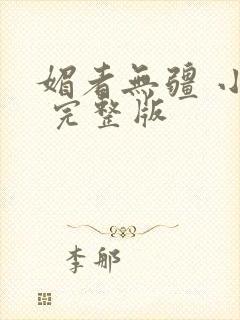 媚者無疆 小
完整版
李郍